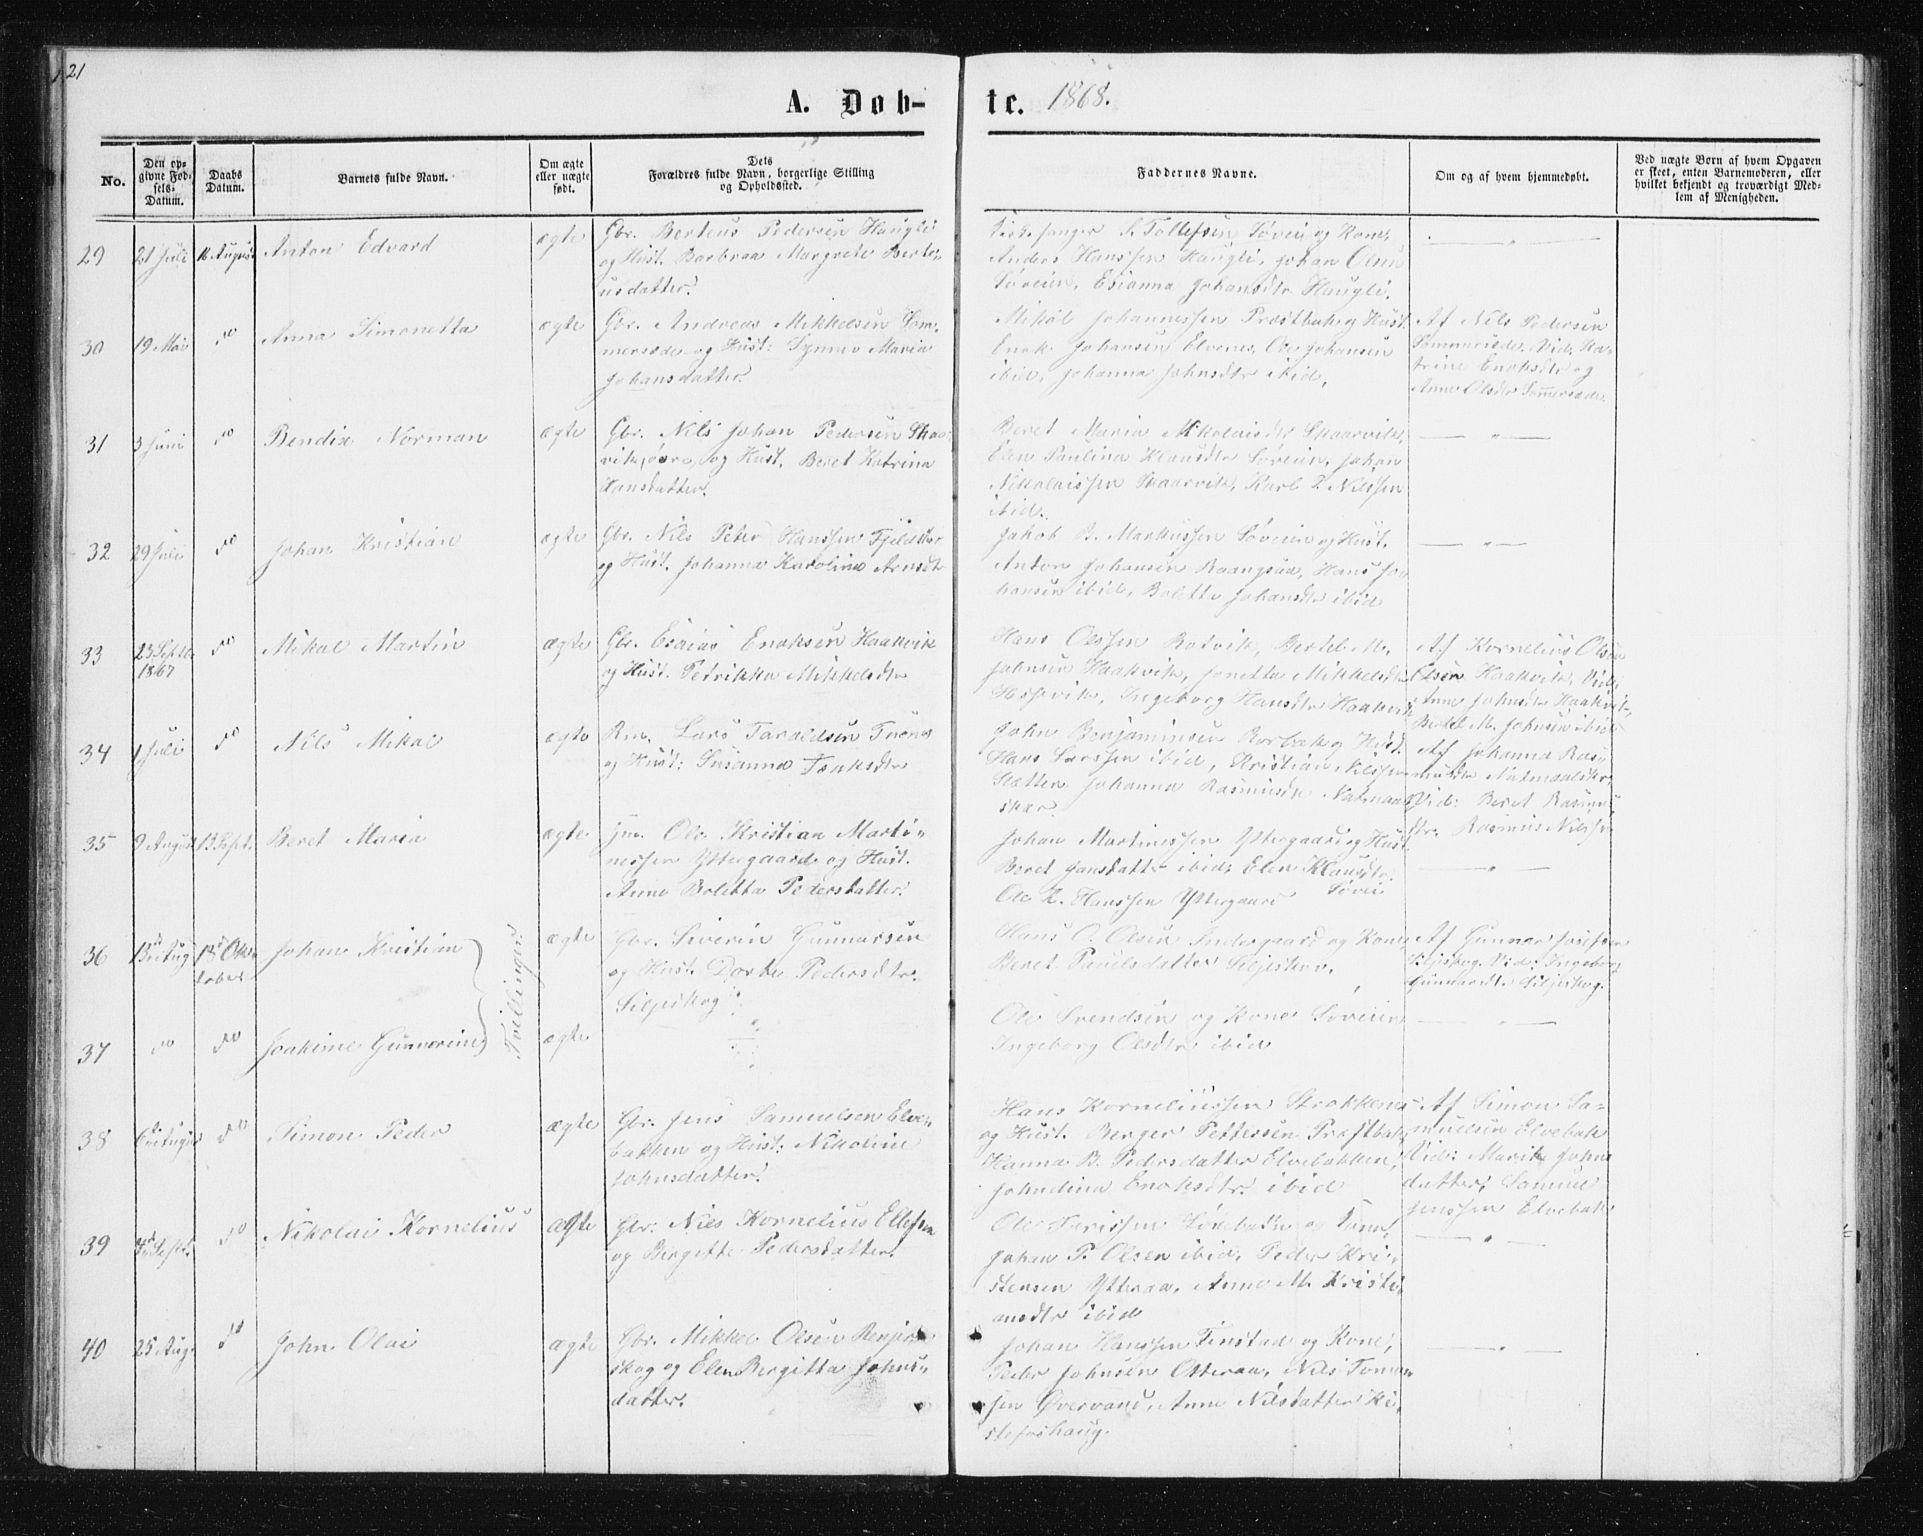 21
A. Døb-
te. 1868.
No.
Den op-
givne Fød-
sels-
Datum.
Daabs
Datum.
Barnets fulde Navn.
Om ægte
eller uægte
født.
Dets
Forældres fulde Navn, borgerlige Stilling
og Opholdssted.
Faddernes Navne.
Om og af hvem hjemmedøbt.
Ved uægte Børn af hvem Opgaven
er skeet, enten Barnemoderen, eller
hvilket bekjendt og troværdigt Med-
lem af Menigheden.
29
21 Juli
16 August
Anton Edvard
ægte
Gbr. Berteus Pedersen Haugli
og Hust. Barbraa Margrete Berte-
usdatter.
Kirkesanger S. Tollefsen Søveien og Kone,
Anders Hanssen Haugli, Johan Olsen
Søveien, Esianna Johansdtr Haugli.
30
19 Mai
do
Anna Simonetta
ægte
Gbr. Andreas Mikkelsen Som-
mersæde og Hust: Synnev Maria
Johansdatter.
Mikal Johannessen Præstbak og Hust.
Enok Johansen Elvenes, Ole Johansen
ibid, Johanna Johnsdtr ibid,
Af Nils Pedersen
Sommersæde. Vid. Ka-
trine Enoksdtr og
Anne Olsdtr Sommersæde.
31
3 Juni
do
Bendix Norman
ægte
Gbr. Nils Johan Pedersen Skaar-
vik, øvre, og Hust. Beret Katrina
Hansdatter.
Beret Maria Nikolaisdtr Skaarvik,
Elen Paulina Klausdtr Søveien, Johan
Nikolaissen Skaarvik, Karl Nilssen
ibid.
32
29 Juli
do
Johan Kristian
ægte
Gbr. Nils Peter Hanssen Fjeldsæter
og Hust. Johanna Karolina Arnsdtr
Jakob B. Markussen Søveien og Hust.
Anton Johansen Raangsaa, Hans Jo-
hansen ibid, Boletta Johansdtr ibid
33
23 Septbr
1867
do
Mikal Martin
ægte
Gbr. Esaias Enoksen Haakvik
og Hust. Petrikka Mikkelsdtr
Hans Olssen Botvik, Bertel M.
Johnsen Haakvik, Jonetta Mikkelsdtr
Haakvik, Ingeborg Hansdtr Haakvik
Af Kornelius Olsen
Olsen Haakvik, Vid:
Anne Johnsdtr Haakvik,
Bertel M. Johnsen ibid
34
1 Juli
do
Nils Mikal
ægte
Lars Taraldsen Tuene
og Hust: Susanna Isaksdtr
John Benjaminsen Rorbæk og Hust.
Hans Larssen ibid, Kristian Nilssen
Slætten Johanna Rasmusdtr Natmaals-
skar
Af Johanna Ras-
musdtr Natmaalskar,
Vid: Beret Rasmus
dtr. Rasmus Nilssen
35
9 August
13 Sept.
Beret Maria
ægte
Ole Kristian Marti-
nessen Yttergaard og Hust.
Anne Boletta Pedersdatter.
Johan Martinessen Yttergaard og Hust
Beret Jansdatter ibid, Elen Klausdtr.
Søvei
Ole L. Hanssen Yttergaard
36
13de Aug
18de Ok-
tober
Johan Kristian
Tvillinger.
ægte
Gbr. Siverin Gunnarsen
og Hust. Dorte Pedersdtr.
Siljeskog
Hans O. Olsen Indergaard og Kone,
Beret Paulsdatter Siljeskov.
Af Gunnar Josefsen
Siljeskog. Vid: Ingeborg
Gunnarsdtr. Siljeskog.
37
do
do
Joakime Gunnarine
ægte
Ole Svendsen og Kone Søveien
Ingeborg Olsdtr ibid
38
6te August
do
Simon Peder
ægte
Gbr. Jens Samuelsen Elve-
bakken og Hust: Nikoline
Johnsdatter.
Hans Korneliussen Strokkenes
og Hust. Berger Pettersen Præstbak
Hanna B. Pedersdatter Elvebakken,
Johndina Enoksdtr. ibid
Af Simon Sa-
muelsen Elvebak
Vid: Marit Johns
datter, Samuel
Jenssen Elvebak
39
4de Sept.
do
Nikolai Kornelius
ægte
Gbr. Nils Kornelius Ellefsen
og Bergitte Pedersdatter.
Ole Larissen Løvebakn og Kone,
Johan P. Olsen ibid, Peder Kri-
stensen Ytteraa, Anne M. Kristi-
ansdtr ibid
40
25 Aug
do
John Olai
ægte
Gbr. Mikkel Olsen Renje-
skog og Elen Bergitta Johns-
datter.
Johan Hanssen Finstad og Kone,
Peder Johnsen Otteraa, Nils Tomas-
sen Øvervand, Anne Nilsdatter Ki-
stefoshaug.